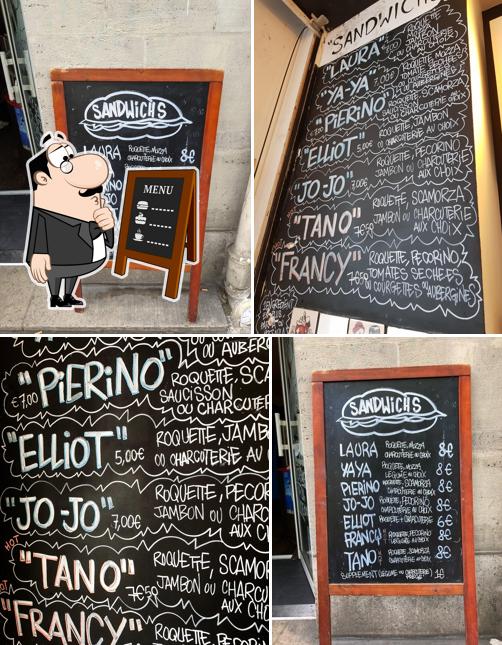 SANDWICHS
LAURA ROQUETTE, MOZZA 8€
CHARCUTERIE AU CHOIX
MENU
"SANDWICHS"
"LAURA" ROQUETTE
"YA-YA" 7,00€ ROQUETTE, MOZZA
TOMATES SECHEES
"PiERiNO" ROQUETTE, SCAMORZA
"ELLiOT" 5,00€ ROQUETTE, JAMBON
OU CHARCUTERIE AU CHOIX
"JO-JO" 7,00€ ROQUETTE, PECORINO
JAMBON OU CHARCUTERIE
AU CHOIX
"TANO" 7€50 ROQUETTE, SCAMORZA
JAMBON OU CHARCUTERIE
AUX CHOIX
"FRANCY" 7€50 ROQUETTE, PECORINO
TOMATES SECHEES
OU COURGETTES OU AUBERGINES
OU AUBER
"PiERiNO" €7,00 ROQUETTE, SCA
SAUCISSON
OU CHARCUTE
"ELLiOT" 5,00€ ROQUETTE, JAMB
OU CHARCUTERIE AU
"JO-JO" 7,00€ ROQUETTE, PECOR
JAMBON OU CHARCU
AU C
HOT "TANO" 7€50 ROQUETTE, SCAMOR
JAMBON OU CHARCU
AUX CH
"FRANCY" ROQUETTE, PECORIN
SANDWICHS
LAURA ROQUETTE, MOZZA 8€
CHARCUTERIE AU CHOIX
YAYA ROQUETTE, MOZZA 8€
LEGUME AU CHOIX
PiERiNO ROQUETTE, SCAMORZA 8€
CHARCUTERIE AU CHOIX
JO-JO ROQUETTE, PECORINO 8€
CHARCUTERIE AU CHOIX
ELLIOT ROQUETTE + CHARCUTERIE 6€
FRANCY ROQUETTE, PECORINO 8€
LEGUME AU CHOIX
TANO ROQUETTE, SCAMORZA 8€
CHARCUTERIE AU CHOIX
SUPPLEMENT (LEGUME OU CHARCUTERIE) 1€